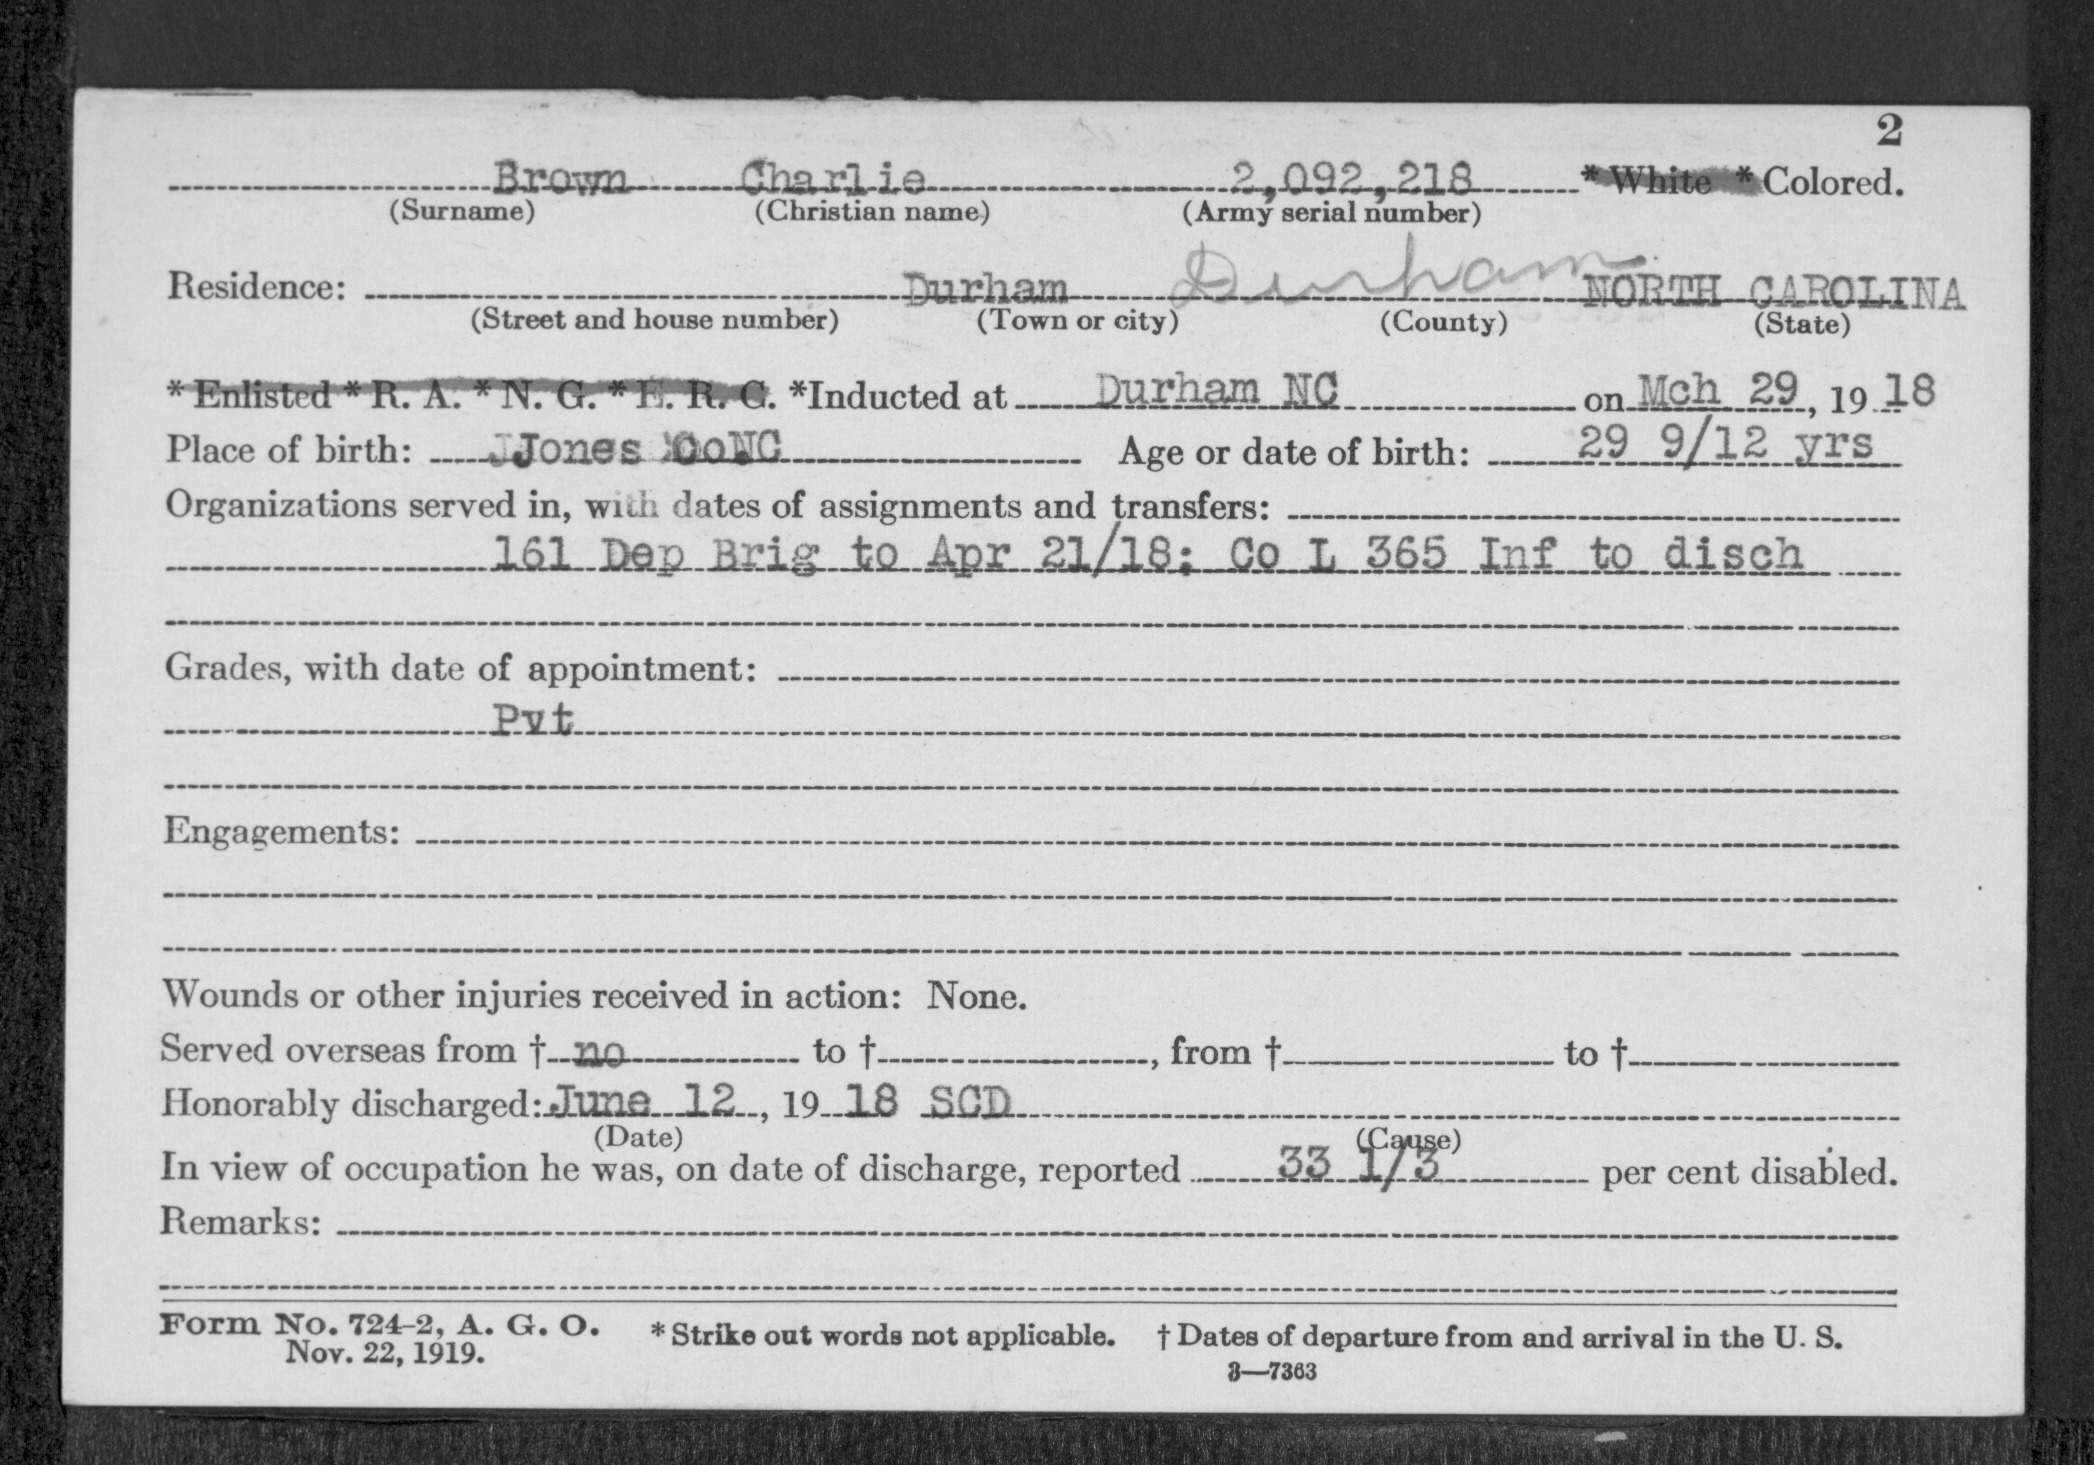 2
Brown Charlie 2,092,218 * White * Colored.
(Surname) (Christian name) (Army serial number)
Residence: Durham Durham NORTH CAROLINA
(Street and house number) (Town or city) (County) (State)
* Enlisted * R. A. * N. G. * E. R. C. *Inducted at Durham NC on Mch 29, 19 18
Place of birth: JJones CoNC Age or date of birth: 29 9/12 yrs
Organizations served in, with dates of assignments and transfers:
161 Dep Brig to Apr 21/18; Co L 365 Inf to disch
Grades, with date of appointment:
Pvt
Engagements:
Wounds or other injuries received in action: None.
Served overseas from † no to †, from † to †
Honorably discharged: June 12, 19 18 SCD
(Date) (Cause)
In view of occupation he was, on date of discharge, reported 33 1/3 per cent disabled.
Remarks:
Form No. 724-2, A. G. O. * Strike out words not applicable. † Dates of departure from and arrival in the U. S.
Nov. 22, 1919.
3—7363